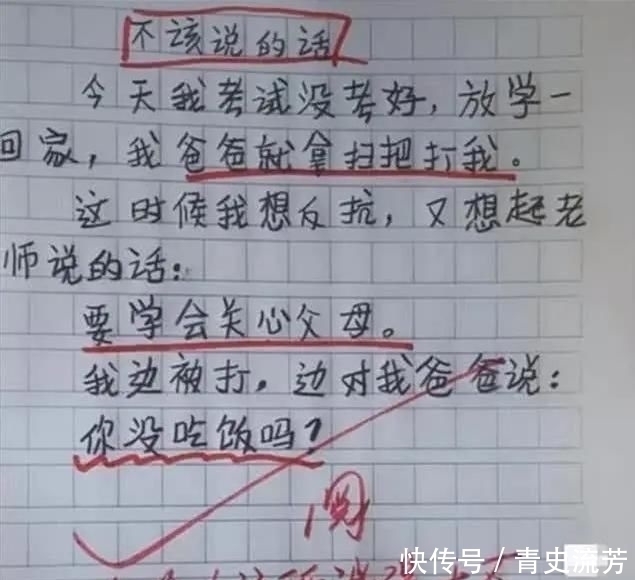 不该说的话
今天我考试没考好，放学一
回家，我爸爸就拿扫把打我。
这时候我想反抗，又想起老
师说的话：
要学会关心父母。
我边被打，边对我爸爸说：
你没吃饭吗？
阅
快传号／青史流芳